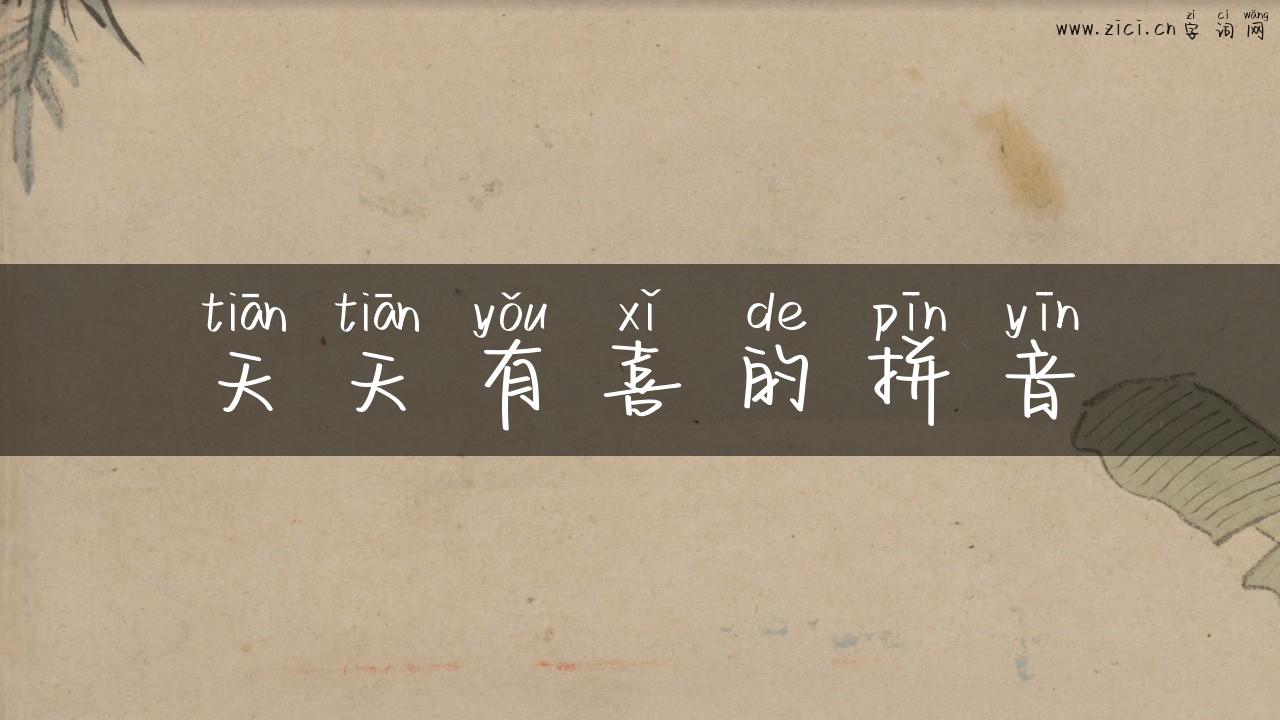 zì cí wǎng
www.zici.cn 字 词 网
tiān tiān yǒu xǐ de pīn yīn
天 天 有 喜 的 拼 音